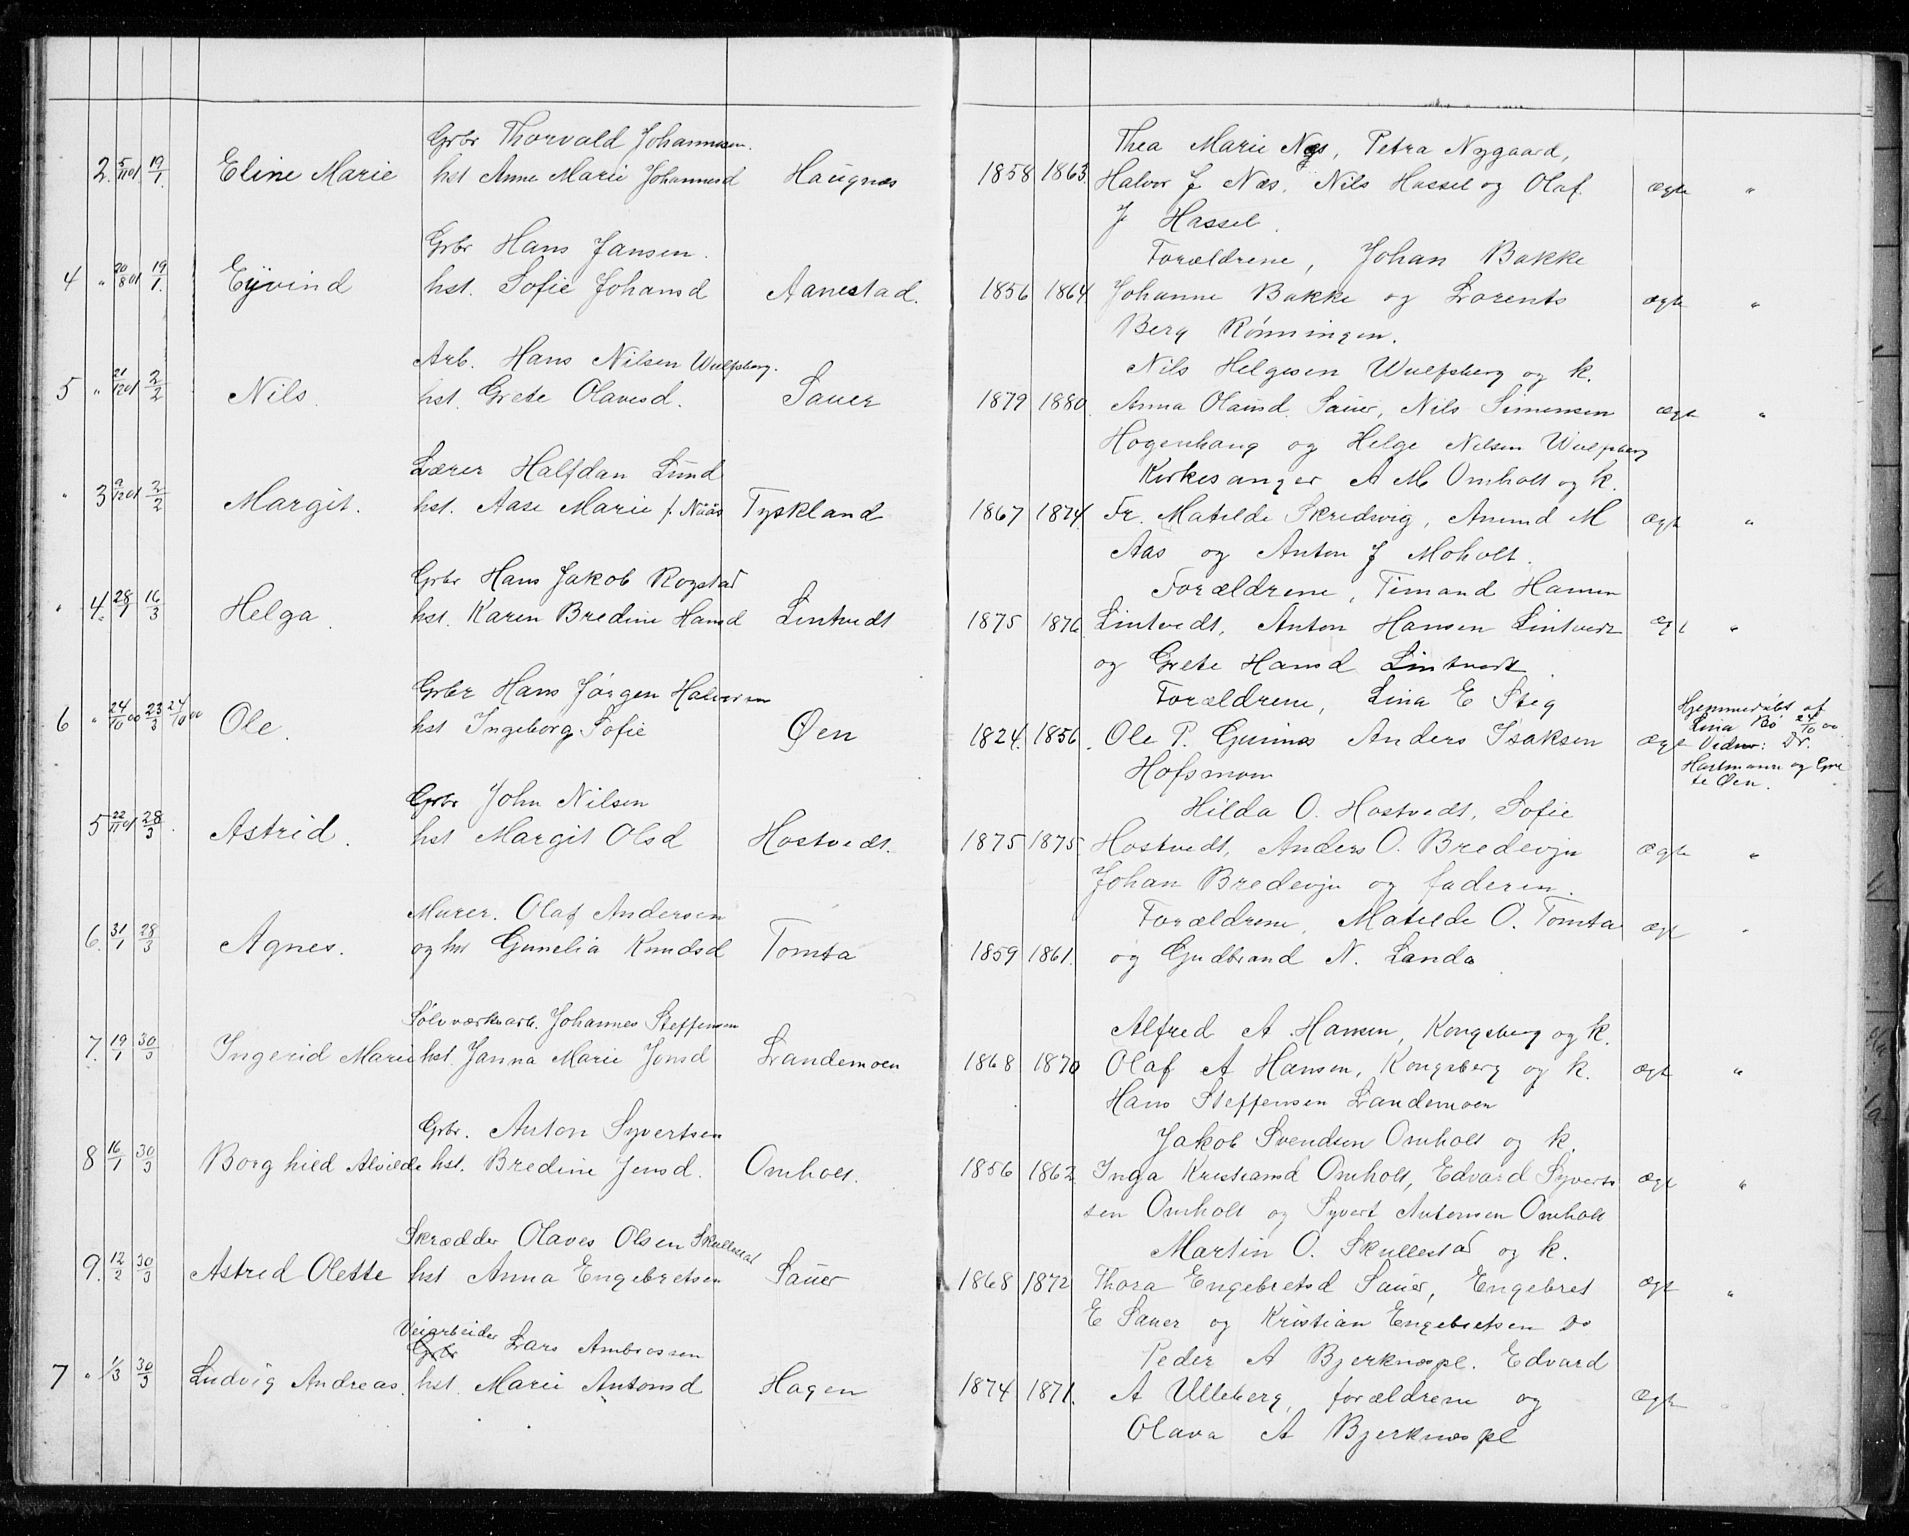 Grbr Thorvald Johannesen.
2. 5/11 01 19/1. Eline Marie hst Anne Marie Johannesd Haugnæs
Grbr Hans Jansen.
4 " 20/8 01 19/1. Eyvind hst. Sofie Johansd Aanestad.
Arb. Hans Nilsen Wulfsberg.
5 " 21/12 01 2/2 Nils. hst. Grete Olavesd. Sauer
Lærer Halfdan Lund
" 3 9/12 01 2/2 Margit. hst. Aase Marie f. Tyskland
Grbr Hans Jakob Rogstad
" 4. 28/1 16/3 Helga. hst. Karen Bredine Hansd Lintvedt
Grbr Hans Jørgen Halvorsen
6 " 24/10 00 23/3 24/10 00 Ole. hst Ingeborg Sofie Øen
Grbr John Nilsen
5 22/11 01 28/3. Astrid. hst Margit Olsd Hostvedt.
Murer. Olaf Andersen
6. 31/1 28/3 Agnes. og hu Gunelia Knudsd Tomta
Sølvværksarb. Johannes Steffensen
7. 19/1 30/3 Ingerid Marie hst. Janna Marie Jonsd Landemoen
Grbr. Anton Syvertsen
8 16/1 30/3 Borghild Alvilde hst. Bredine Jensd. Omholt.
Skrædder Olaves Olsen Skullestad
9. 12/2 30/3 Astrid Olette hst Anna Engebretsen Sauer
Veiarbeider Lars Ambrosen
Grbr
7 " 1/3 30/3 Ludvig Andreas. hst. Marie Antonsd Hagen
Thea Marie Næs, Petra Nygaard,
1858 1863 Halvor J Næs, Nils Hassel og Olaf ægte "
J Hassel.
Forældrene, Johan Bakke
1856 1864 Johanne Bakke og Lorents ægte "
Berg Rønningen.
Nils Helgesen Wulfsberg og k.
1879 1880 Anna Olausd. Sauer, Nils Simensen ægt "
Hogenhaug og Helge Nilsen Wulfsberg
Kirkesanger A M Omholt og k.
1867 1874 Fr. Matilde Skredsvig, Amund M ægt "
Aas og Anton J Moholt.
Forældrene, Timand Hansen
1875 1876 Lintvedt, Anton Hansen Lintvedt ægt "
og Grete Hansd Lintvedt
Forældrene, Lina E Steg
1824. 1856. Ole P. Gunnes Anders Isaksen ægt Hjemmedøbt af Lina Bø 24/10 00
Hofsmoen Vidner: Dr. Hartmann og Grete Øen.
Hilda O. Hostvedt, Sofie
1875 1875 Hostvedt, Anders O. Bredevju ægte "
Johan Bredevju og faderen.
Forældrene, Matilde O. Tomta ægt "
1859 1861. og Gudbrand N. Landa
Alfred A Hansen, Kongsberg og k.
1868 1870 Olaf A Hansen, Kongsberg og k. ægt "
Hans Steffensen Landemoen
Jakob Svendsen Omholt og k.
1856 1862 Inga Kristiansd Omholt, Edvard Syvert ægt "
sen Omholt og Syvert Antonsen Omholt
Martin O. Skullestad og k.
1868 1872 Thora Engebretsd Sauer, Engebret ægt "
E Sauer og Kristian Engebretsen Do
Peder A Bjerknæspl. Edvard
1874 1871. A Ulleberg, forældrene og ægte
Olava A Bjerknæspl